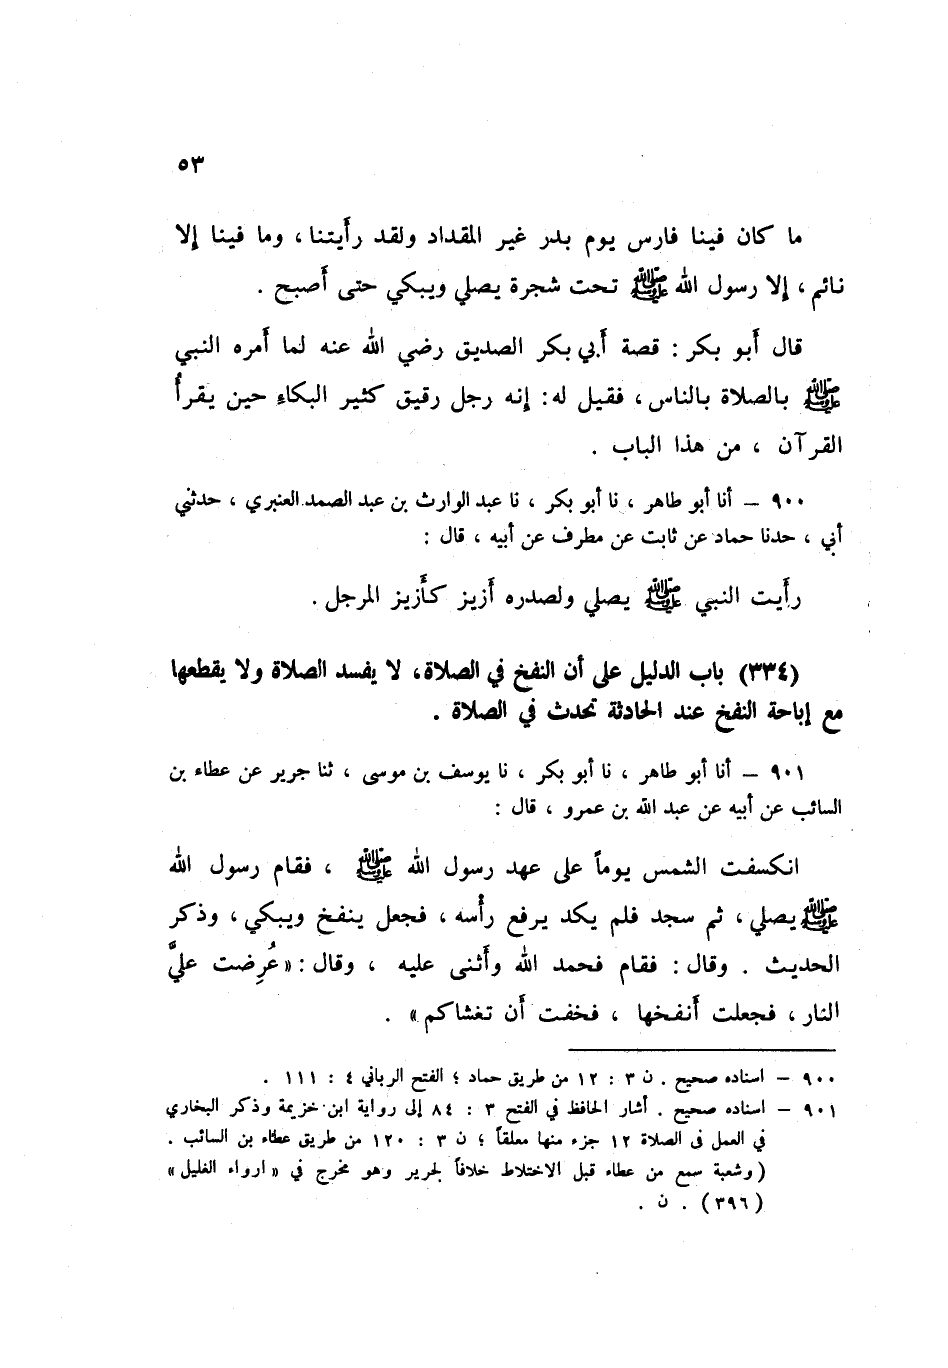 ٥٣
ما كان فينا فارس يوم بدر غير المقداد ولقد رأَيتنا ، وما فينا إلا
نائم ، إلا رسول الله ﷺ تحت شجرة يصلي ويبكي حتى أَصبح .
قال أَبو بكر : قصة أَبي بكر الصديق رضي الله عنه لما أَمره النبي
ﷺ بالصلاة بالناس ، فقيل له : إنه رجل رقيق كثير البكاءِ حين يقرأُ
القرآن ، من هذا الباب .
٩٠٠ – أنا أبو طاهر ، نا أبو بكر ، نا عبد الوارث بن عبد الصمد العنبري ، حدثني
أبي ، حدنا حماد عن ثابت عن مطرف عن أبيه ، قال :
رأَيت النبي ﷺ يصلي ولصدره أَزيز كأَزيز المرجل .
(٣٣٤) باب الدليل على أن النفخ في الصلاة ، لا يفسد الصلاة ولا يقطعها
مع إباحة النفخ عند الحادثة تحدث في الصلاة .
٩٠١ – أنا أبو طاهر ، نا أبو بكر ، نا يوسف بن موسى ، ثنا جرير عن عطاء بن
السائب عن أبيه عن عبد الله بن عمرو ، قال :
انكسفت الشمس يوماً على عهد رسول الله ﷺ ، فقام رسول الله
ﷺ يصلي ، ثم سجد فلم يكد يرفع رأْسه ، فجعل ينفخ ويبكي ، وذكر
الحديث . وقال : فقام فحمد الله وأَثنى عليه ، وقال : « عُرِضت عليَّ
النار ، فجعلت أَنفخها ، فخفت أَن تغشاكم » .
٩٠٠ – اسناده صحيح . ن ٣ : ١٢ من طريق حماد ؛ الفتح الرباني ٤ : ١١١ .
٩٠١ – اسناده صحيح . أشار الحافظ في الفتح ٣ : ٨٤ إلى رواية ابن خزيمة وذكر البخاري
في العمل فى الصلاة ١٢ جزء منها معلقاً ؛ ن ٣ : ١٢٠ من طريق عطاء بن السائب .
( وشعبة سمع من عطاء قبل الاختلاط خلافاً لجرير وهو مخرج في « ارواء الغليل »
( ٣٩٦ ) . ن .